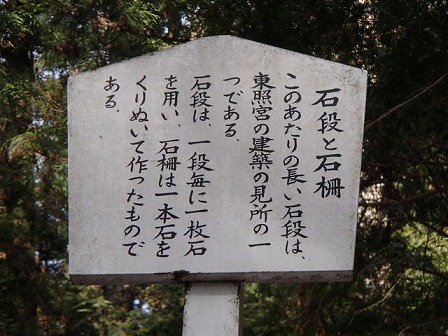 石段と石柵
このあたりの長い石段は、
東照宮の建築の見所の一
つである。
石段は、一段毎に一枚石
を用い、石柵は一本石を
くりぬいて作ったもので
ある。